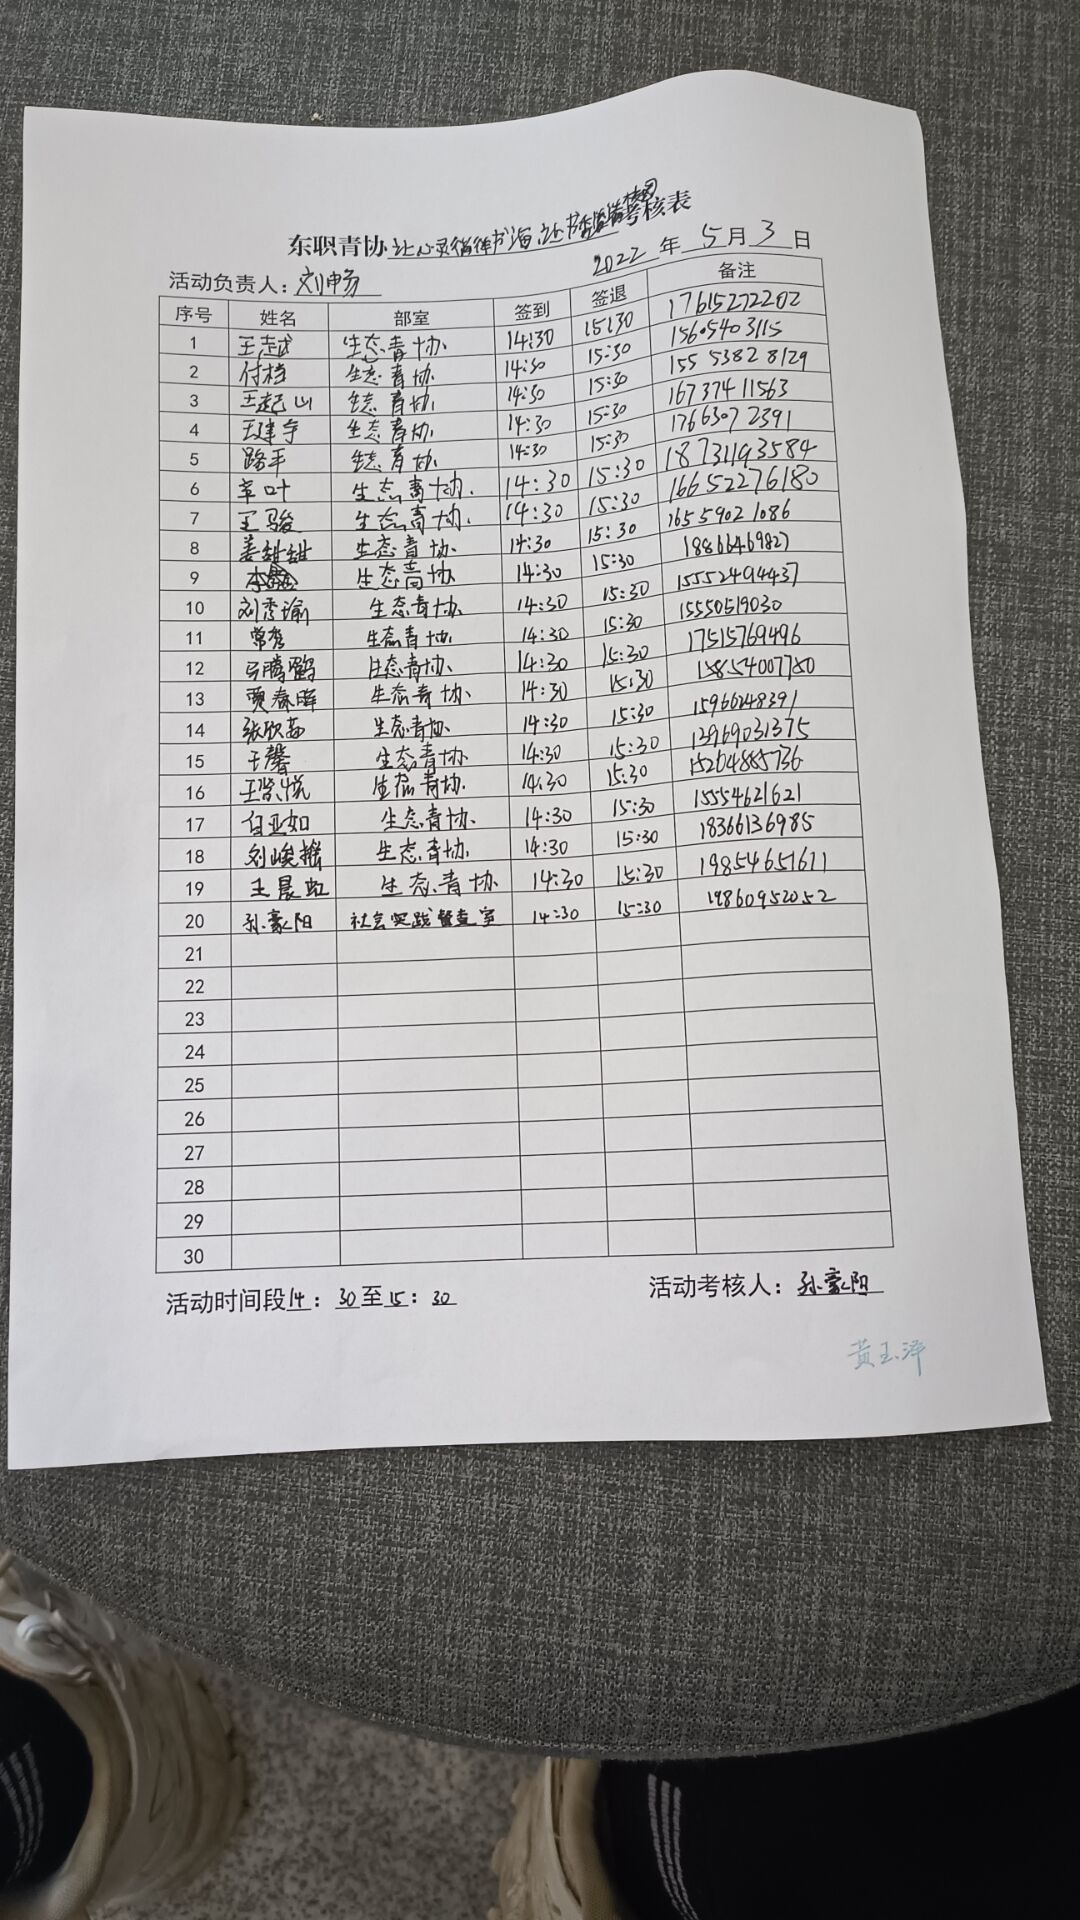 东职青协让心灵徜徉书海,让书香 考核表
2022年5月3日
活动负责人:刘申易
序号 姓名 部室 签到 签退 备注
1 王志斌 生态青协 14:30 15:30 17615272202
2 付档 生态青协 14:30 15:30 15605403115
3 王起山 生态青协 14:30 15:30 15553828129
4 王建宇 生态青协 14:30 15:30 16737411563
5 路平 生态青协 14:30 15:30 17663072391
6 草叶 生态青协. 14:30 15:30 18731193584
7 王骏 生态青协. 14:30 15:30 16652276180
8 姜甜甜 生态青协 14:30 15:30 16559021086
9 李 生态青协 14:30 15:30 18866469827
10 刘秀瑜 生态青协 14:30 15:30 15552494437
11 常秀 生态青协 14:30 15:30 15550519030
12 马腾鹞 生态青协 14:30 15:30 17515769496
13 贾春晖 生态青协 14:30 15:30 15854007780
14 张欣茹 生态青协 14:30 15:30 15966248391
15 于馨 生态青协 14:30 15:30 13969031375
16 王棠悦 生态青协. 14:30 15:30 15264885736
17 白亚如 生态青协. 14:30 15:30 15554621621
18 刘峻 生态青协 14:30 15:30 18366136985
19 王晨虹 生态青协 14:30 15:30 19854651611
20 孙豪阳 社会实践督查室 14:30 15:30 19860952052
21
22
23
24
25
26
27
28
29
30
活动时间段14:30至15:30 活动考核人:孙豪阳
黄玉泽